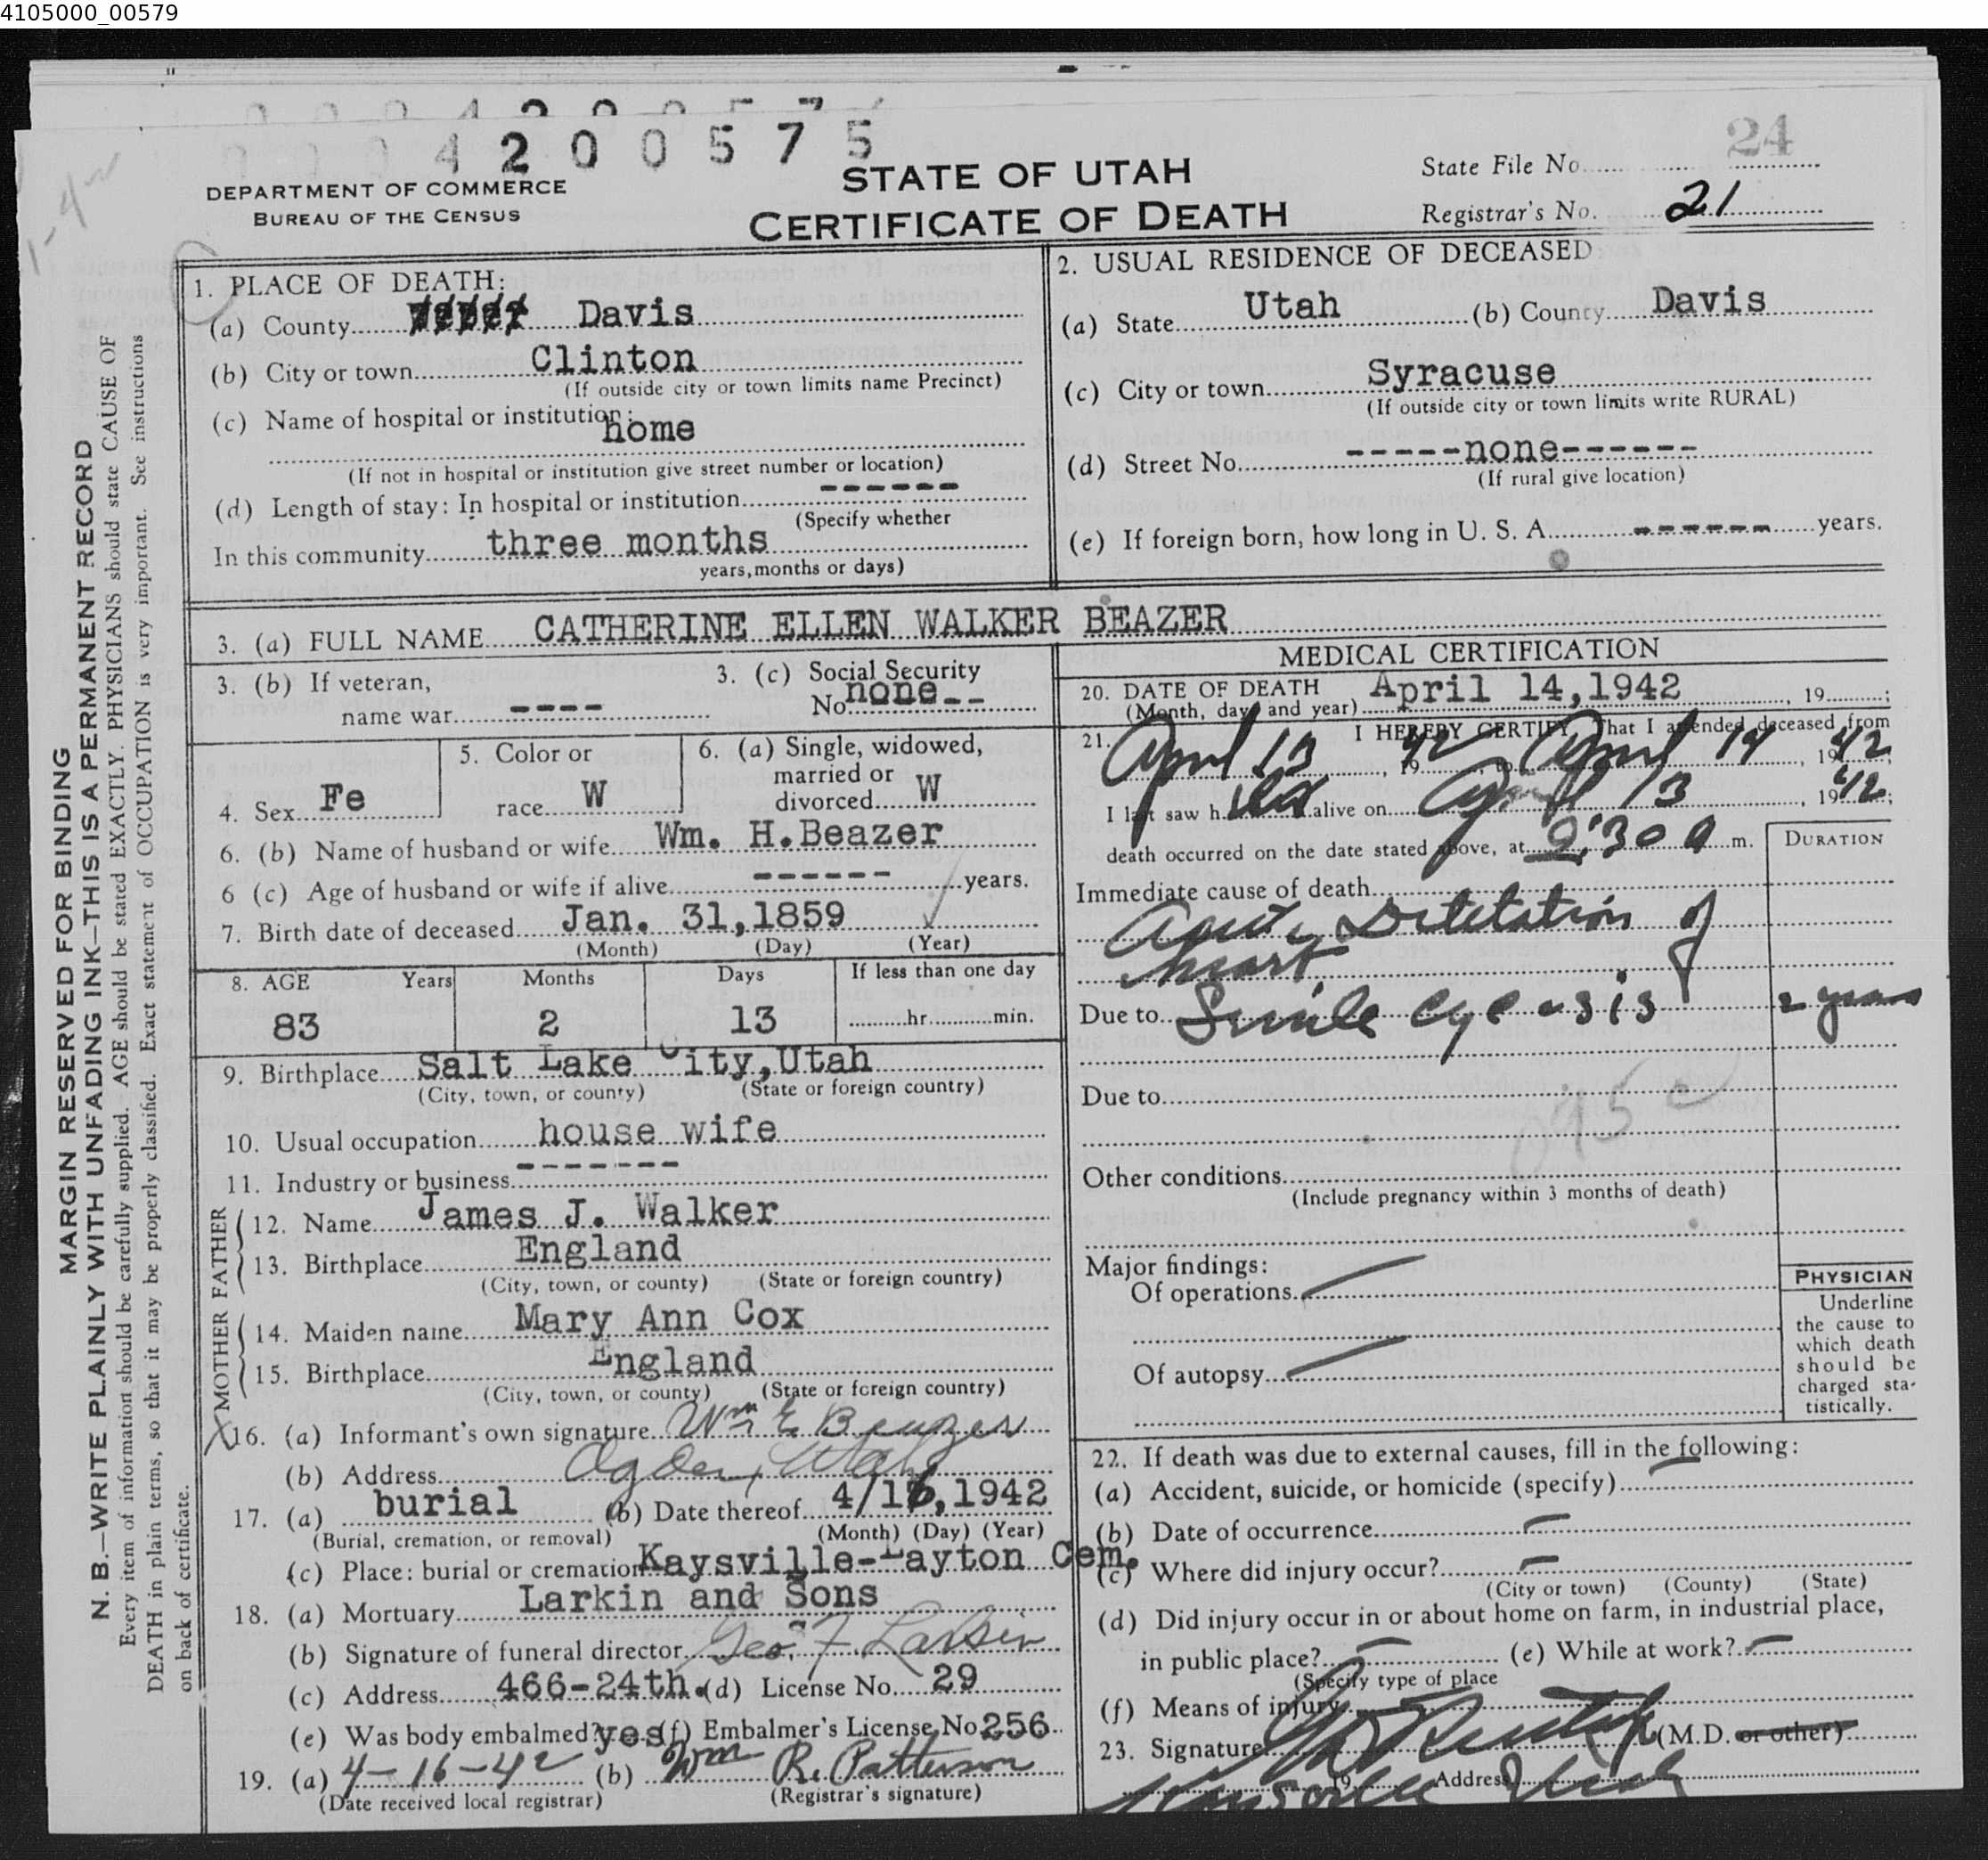 4105000_00579
0 0 0 4 2 0 0 5 7 5
24
DEPARTMENT OF COMMERCE
BUREAU OF THE CENSUS
STATE OF UTAH
CERTIFICATE OF DEATH
State File No.
Registrar's No. 21
MARGIN RESERVED FOR BINDING
N. B.—WRITE PLAINLY WITH UNFADING INK—THIS IS A PERMANENT RECORD
Every item of information should be carefully supplied. AGE should be stated EXACTLY. PHYSICIANS should state CAUSE OF
DEATH in plain terms, so that it may be properly classified. Exact statement of OCCUPATION is very important. See instructions
on back of certificate.
1. PLACE OF DEATH:
(a) County Weber Davis
(b) City or town Clinton
(If outside city or town limits name Precinct)
(c) Name of hospital or institution:
home
(If not in hospital or institution give street number or location)
(d) Length of stay: In hospital or institution ------
(Specify whether
In this community three months
years, months or days)
2. USUAL RESIDENCE OF DECEASED
(a) State Utah (b) County Davis
(c) City or town Syracuse
(If outside city or town limits write RURAL)
(d) Street No. -----none------
(If rural give location)
(e) If foreign born, how long in U. S. A. ------ years.
3. (a) FULL NAME CATHERINE ELLEN WALKER BEAZER
3. (b) If veteran,
name war ----
3. (c) Social Security
No. none--
4. Sex Fe
5. Color or
race W
6. (a) Single, widowed,
married or
divorced W
6. (b) Name of husband or wife Wm. H.Beazer
6 (c) Age of husband or wife if alive ------ years.
7. Birth date of deceased Jan. 31,1859
(Month) (Day) (Year)
8. AGE Years Months Days If less than one day
83 2 13 hr. min.
9. Birthplace Salt Lake City,Utah
(City, town, or county) (State or foreign country)
10. Usual occupation house wife
11. Industry or business -------
FATHER
12. Name James J. Walker
13. Birthplace England
(City, town, or county) (State or foreign country)
MOTHER
14. Maiden name Mary Ann Cox
15. Birthplace England
(City, town, or county) (State or foreign country)
16. (a) Informant's own signature Wm E Beazer
(b) Address Ogden, Utah
17. (a) burial (b) Date thereof 4/16,1942
(Burial, cremation, or removal) (Month) (Day) (Year)
(c) Place: burial or cremation Kaysville-Layton Cem.
18. (a) Mortuary Larkin and Sons
(b) Signature of funeral director Geo. F. Larkin
(c) Address 466-24th. (d) License No. 29
(e) Was body embalmed? yes (f) Embalmer's License No. 256
19. (a) 4-16-42 (b) Wm R. Patterson
(Date received local registrar) (Registrar's signature)
MEDICAL CERTIFICATION
20. DATE OF DEATH April 14,1942 , 19 ;
(Month, day and year)
21. I HEREBY CERTIFY, That I attended deceased from
April 13, 1942 to April 14, 1942;
I last saw her alive on April 13, 1942;
death occurred on the date stated above, at 2:30 a m.
DURATION
Immediate cause of death
Acute Diletation of
heart
Due to Senile 2 years
Due to
Other conditions
(Include pregnancy within 3 months of death)
Major findings:
Of operations
Of autopsy
PHYSICIAN
Underline
the cause to
which death
should be
charged sta-
tistically.
22. If death was due to external causes, fill in the following:
(a) Accident, suicide, or homicide (specify)
(b) Date of occurrence
(c) Where did injury occur?
(City or town) (County) (State)
(d) Did injury occur in or about home on farm, in industrial place,
in public place? (e) While at work?
(Specify type of place
(f) Means of injury
23. Signature (M.D. or other)
19 Address Utah